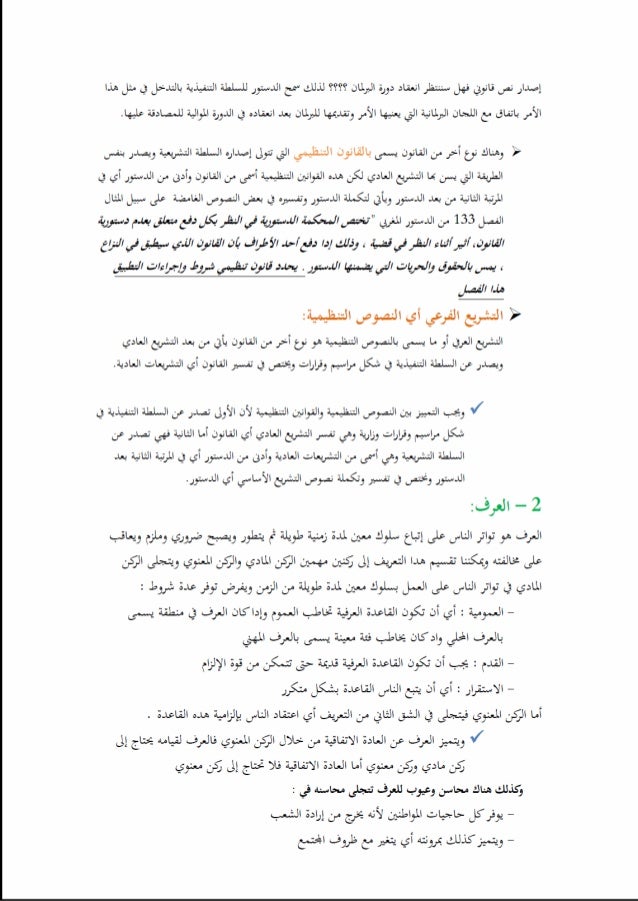 إصدار نص قانوني فهل سننتظر انعقاد دورة البرلمان ؟؟؟؟ لذلك سمح الدستور للسلطة التنفيذية بالتدخل في مثل هذا
الأمر باتفاق مع اللجان البرلمانية التي يعنيها الأمر وتقديمها للبرلمان بعد انعقاده في الدورة الموالية للمصادقة عليها.
➢ وهناك نوع أخر من القانون يسمى بالقانون التنظيمي التي تتولى إصداره السلطة التشريعية ويصدر بنفس
الطريقة التي يسن بها التشريع العادي لكن هده القوانين التنظيمية أسمى من القانون وأدنى من الدستور أي في
المرتبة الثانية من بعد الدستور ويأتي لتكملة الدستور وتفسيره في بعض النصوص الغامضة على سبيل المثال
الفصل 133 من الدستور المغربي "تختص المحكمة الدستورية في النظر بكل دفع متعلق بعدم دستورية
القانون، أثير أثناء النظر في قضية ، وذلك إدا دفع أحد الأطراف بأن القانون الذي سيطبق في النزاع
، يمس بالحقوق والحريات التي يضمنها الدستور . يحدد قانون تنظيمي شروط وإجراءات التطبيق
هدا الفصل
➢ التشريع الفرعي أي النصوص التنظيمية:
التشريع العرفي أو ما يسمى بالنصوص التنظيمية هو نوع أخر من القانون يأتي من بعد التشريع العادي
ويصدر عن السلطة التنفيذية في شكل مراسيم وقرارات ويختص في تفسير القانون أي التشريعات العادية.
✓ ويجب التمييز بين النصوص التنظيمية والقوانين التنظيمية لأن الأولى تصدر عن السلطة التنفيذية في
شكل مراسيم وقرارات وزارية وهي تفسر التشريع العادي أي القانون أما الثانية فهي تصدر عن
السلطة التشريعية وهي أسمى من التشريعات العادية وأدنى من الدستور أي في المرتبة الثانية بعد
الدستور وتختص في تفسير وتكملة نصوص التشريع الأساسي أي الدستور.
2 – العرف:
العرف هو تواتر الناس على إتباع سلوك معين لمدة زمنية طويلة ثم يتطور ويصبح ضروري وملزم ويعاقب
على مخالفته ويمكننا تقسيم هدا التعريف إلى ركنين مهمين الركن المادي والركن المعنوي ويتجلى الركن
المادي في تواتر الناس على العمل بسلوك معين لمدة طويلة من الزمن ويفرض توفر عدة شروط :
– العمومية : أي أن تكون القاعدة العرفية تخاطب العموم وإدا كان العرف في منطقة يسمى
بالعرف المحلي واد كان يخاطب فئة معينة يسمى بالعرف المهني
– القدم : يجب أن تكون القاعدة العرفية قديمة حتى تتمكن من قوة الإلزام
– الاستقرار : أي أن يتبع الناس القاعدة بشكل متكرر
أما الركن المعنوي فيتجلى في الشق الثاني من التعريف أي اعتقاد الناس بإلزامية هده القاعدة .
✓ ويتميز العرف عن العادة الاتفاقية من خلال الركن المعنوي فالعرف لقيامه يحتاج إلى
ركن مادي وركن معنوي أما العادة الاتفاقية فلا تحتاج إلى ركن معنوي
وكذلك هناك محاسن وعيوب للعرف تتجلى محاسنه في :
– يوفر كل حاجيات المواطنين لأنه يخرج من إرادة الشعب
– ويتميز كذلك بمرونته أي يتغير مع ظروف المجتمع